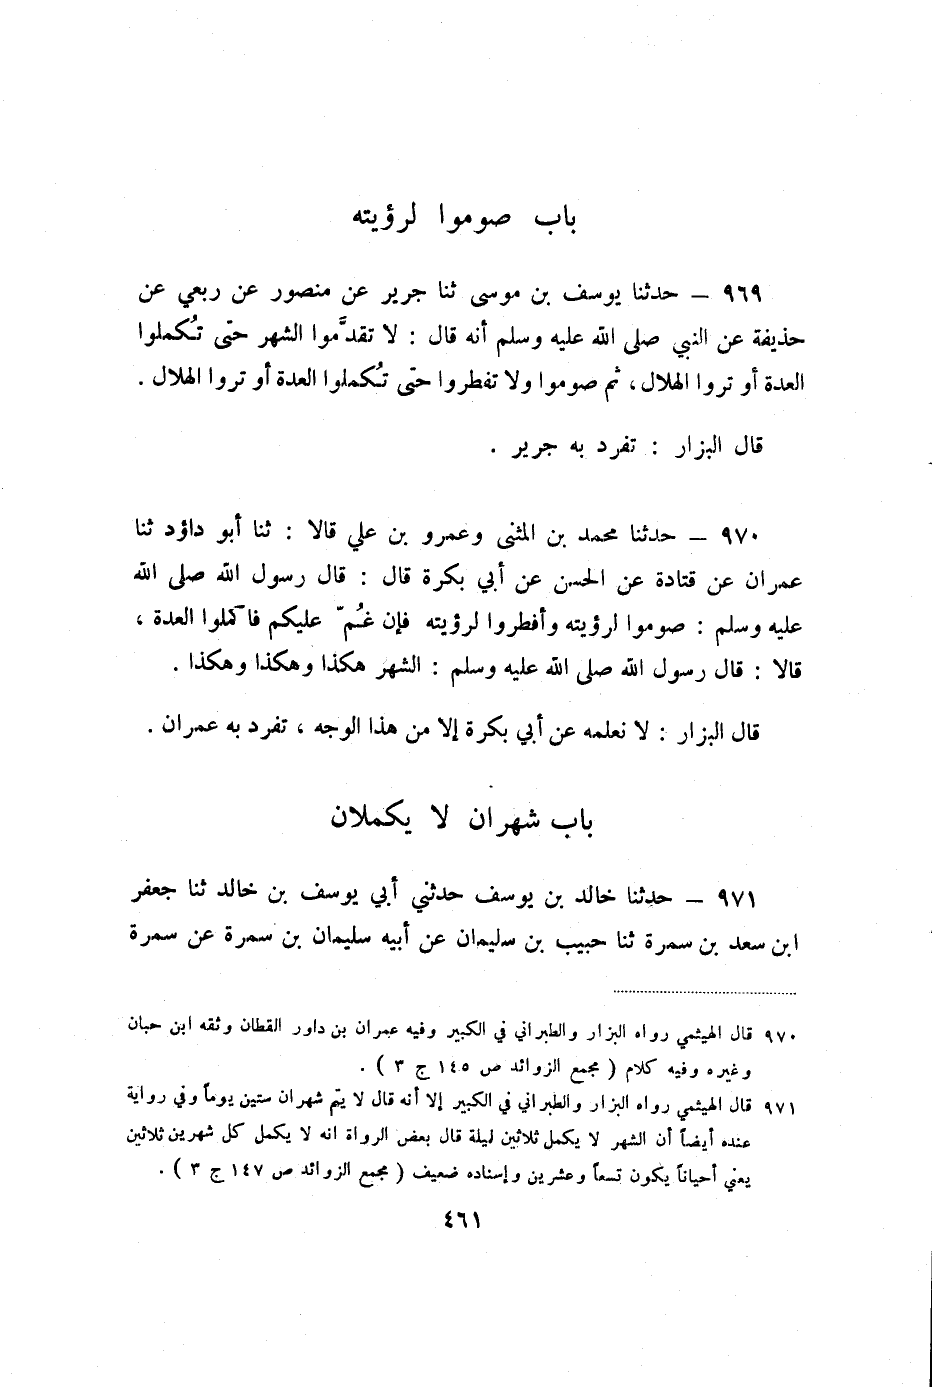 باب صوموا لرؤيته
٩٦٩ – حدثنا يوسف بن موسى ثنا جرير عن منصور عن ربعي عن
حذيفة عن النبي صلى الله عليه وسلم أنه قال : لا تقدَّموا الشهر حتّى تُكملوا
العدة أو تروا الهلال ، ثم صوموا ولا تفطروا حتّى تُكملوا العدة أو تروا الهلال .
قال البزار : تفرد به جرير .
٩٧٠ – حدثنا محمد بن المثنى وعمرو بن علي قالا : ثنا أبو داؤد ثنا
عمران عن قتادة عن الحسن عن أبي بكرة قال : قال رسول الله صلى الله
عليه وسلم : صوموا لرؤيته وأفطروا لرؤيته فإن غُمّ عليكم فاكملوا العدة ،
قالا : قال رسول الله صلى الله عليه وسلم : الشهر هكذا وهكذا وهكذا .
قال البزار : لا نعلمه عن أبي بكرة إلا من هذا الوجه ، تفرد به عمران .
باب شهران لا يكملان
٩٧١ – حدثنا خالد بن يوسف حدثني أبي يوسف بن خالد ثنا جعفر
ابن سعد بن سمرة ثنا حبيب بن سليمان عن أبيه سليمان بن سمرة عن سمرة
٩٧٠ قال الهيثمي رواه البزار والطبراني في الكبير وفيه عمران بن داور القطان وثقه ابن حبان
وغيره وفيه كلام ( مجمع الزوائد ص ١٤٥ ج ٣ ) .
٩٧١ قال الهيثمي رواه البزار والطبراني في الكبير إلا أنه قال لا يتم شهران ستين يوماً وفي رواية
عنده أيضاً أن الشهر لا يكمل ثلاثين ليلة قال بعض الرواة انه لا يكمل كل شهرين ثلاثين
يعني أحياناً يكون تسعاً وعشرين وإسناده ضعيف ( مجمع الزوائد ص ١٤٧ ج ٣ ) .
٤٦١